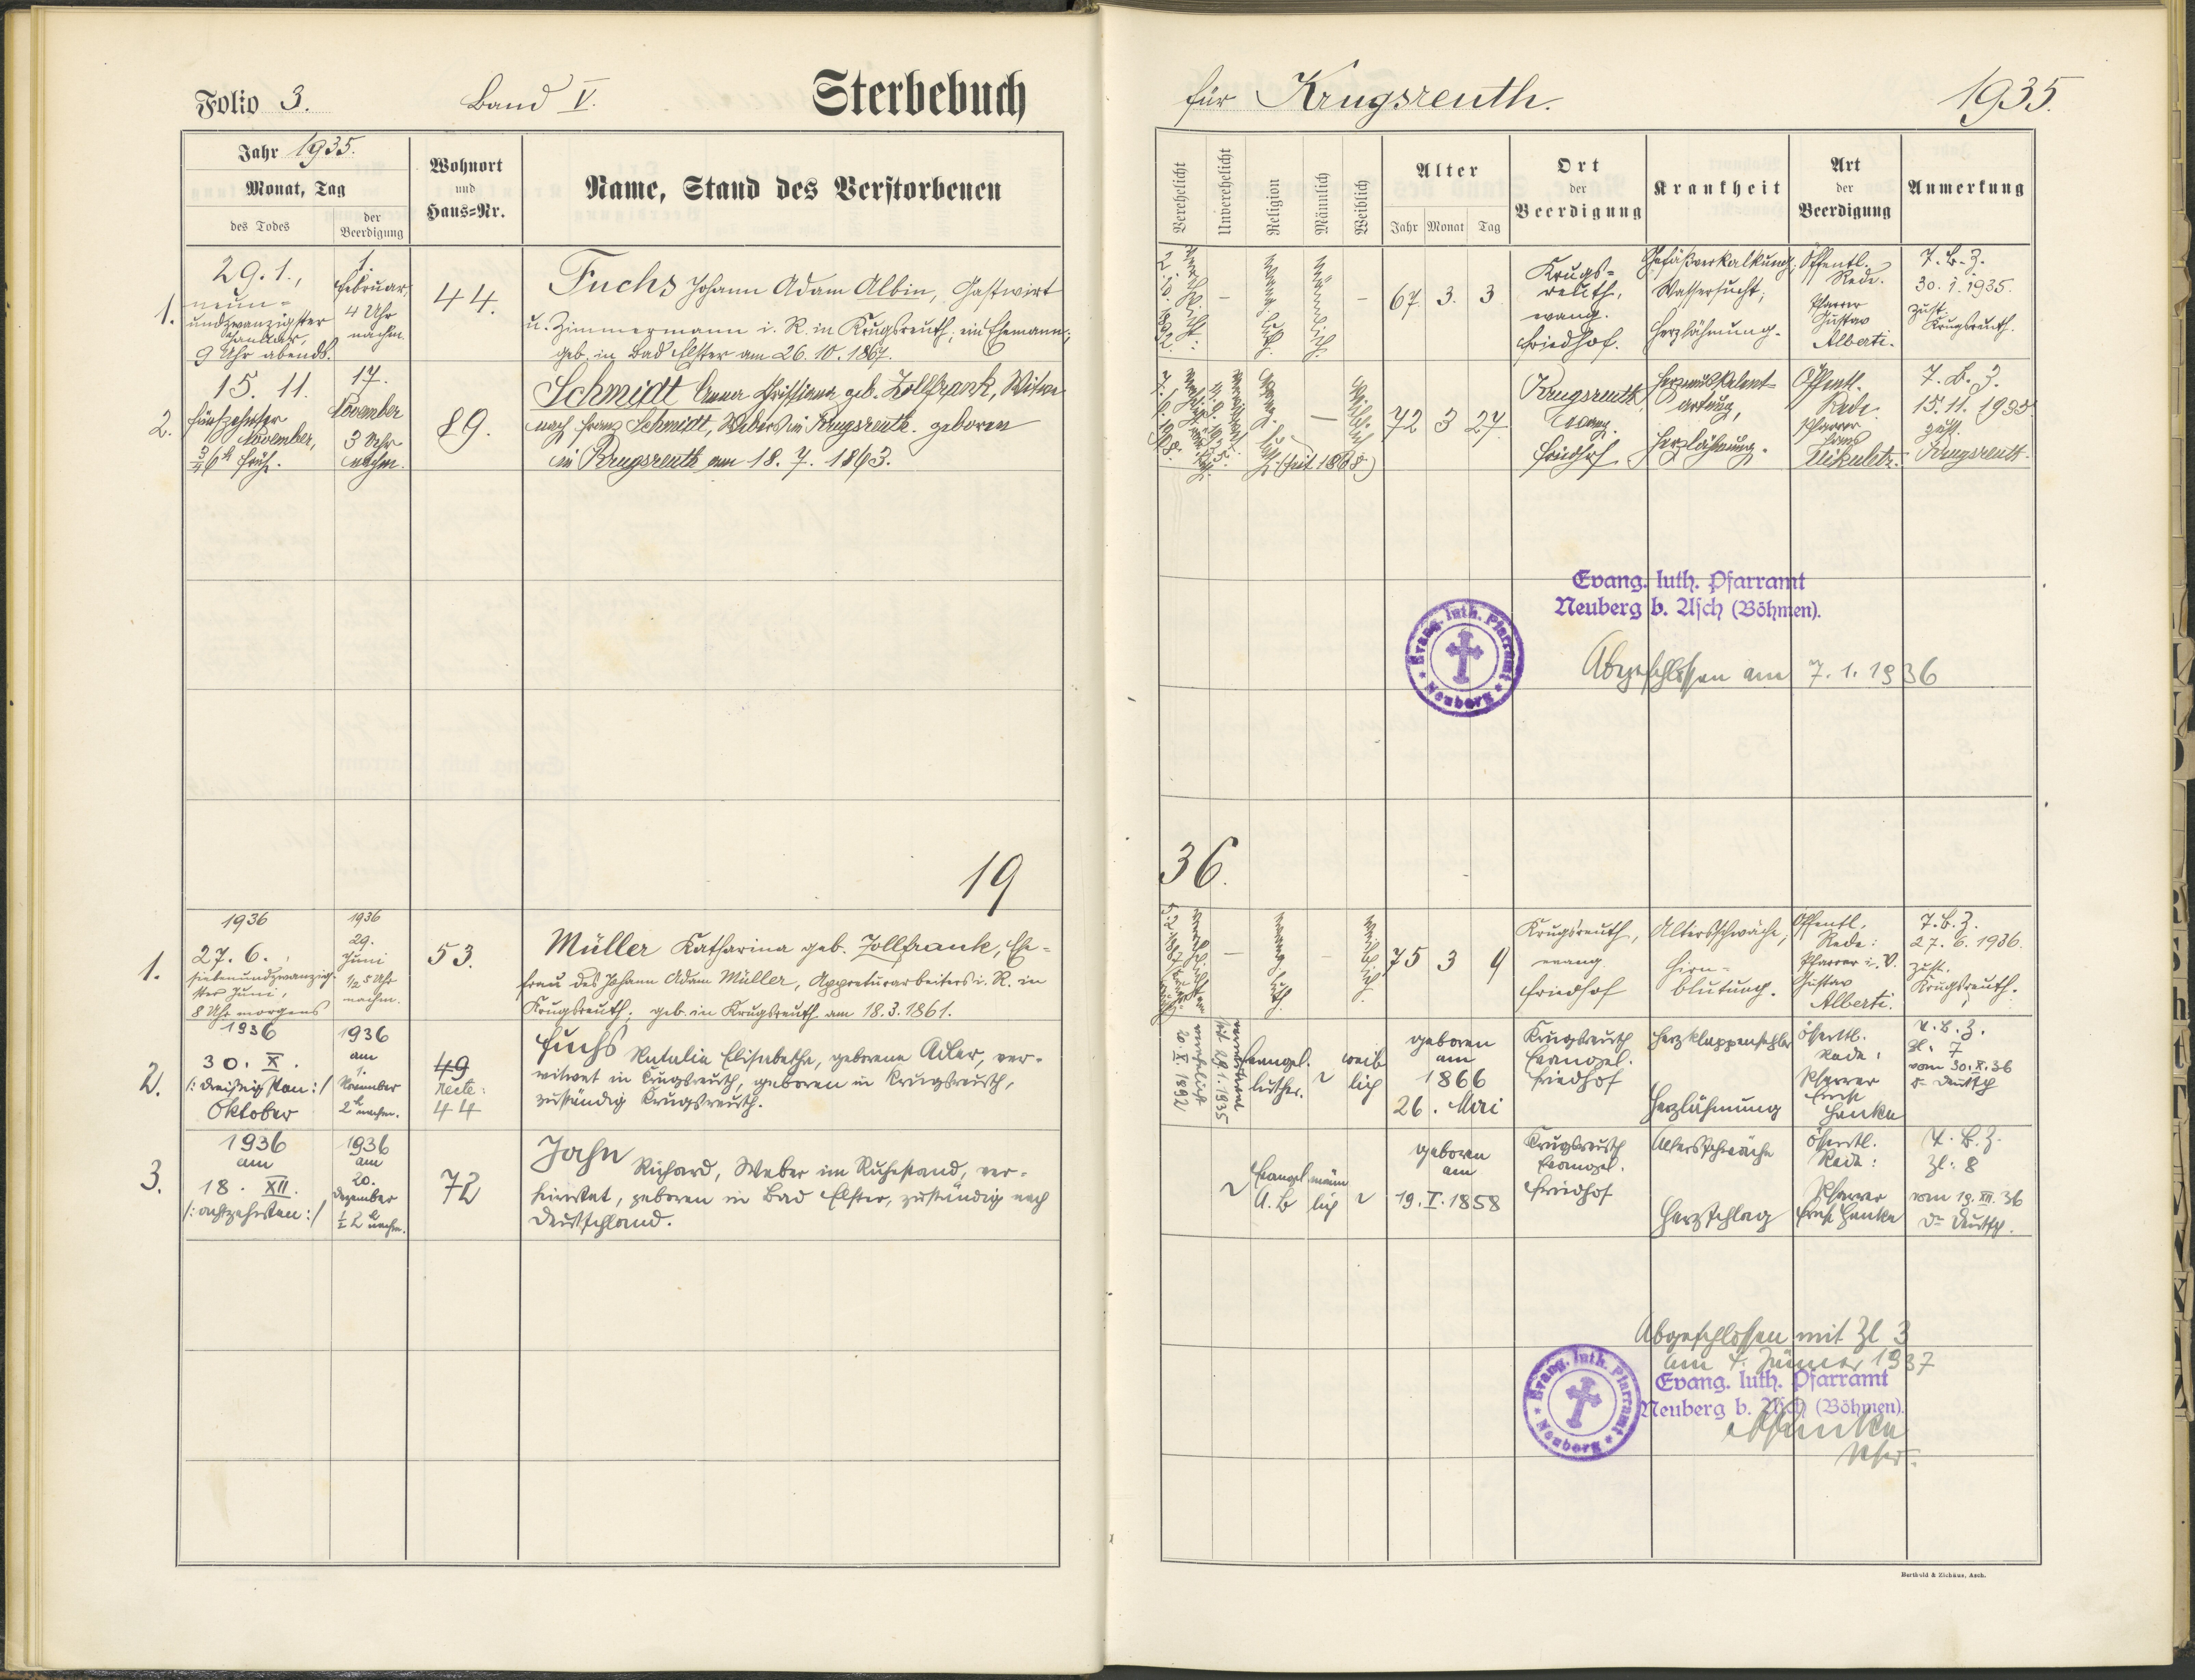 Folio 3.
Band V.
Sterbebuch
Jahr 1935.
Monat, Tag
des Todes
der
Beerdigung
Wohnort
und
Haus=Nr.
Name, Stand des Verstorbenen
1.
29. 1.,
neun=
undzwanzigster
Januar,
9 Uhr abends.
1.
Februar,
4 Uhr
nachm.
44.
Fuchs Johann Adam Albin, Gastwirt
u. Zimmermann i. R. in Krugsreuth; ein Ehemann;
geb. in Bad Elster am 26. 10. 1867.
2.
15. 11.
fünfzehnter
November,
¾ 6h früh.
17.
November
3 Uhr
nachm.
89.
Schmidt Anna Christiana geb. Zollfrank, Witwe
nach Franz Schmidt, Webers in Krugsreuth. geboren
in Krugsreuth am 18. 7. 1863.
19
1.
1936
27. 6.,
siebenundzwanzig-
ster Juni,
8 Uhr morgens
1936
29.
Juni
½ 5 Uhr
nachm.
53.
Müller Katharina geb. Zollfrank, Ehe=
frau des Johann Adam Müller, Appreturarbeiters i. R. in
Krugsreuth; geb. in Krugsreuth am 18. 3. 1861.
2.
1936
30. X.
/: dreißigsten :/
Oktober
1936
am
1.
November
2h nachm.
49
recte:
44
Fuchs Natalia Elisabetha, geborene Adler, ver-
witwet in Krugsreuth, geboren in Krugsreuth,
zuständig Krugsreuth.
3.
1936
am
18. XII.
/: achtzehnten :/
1936
am
20.
Dezember
½ 2h nachm.
72
Jahn Richard, Weber im Ruhestand, ver-
heiratet, geboren in Bad Elster, zuständig nach
Deutschland.
für Krugsreuth.
1935.
Verehelicht
Unverehelicht
Religion
Männlich
Weiblich
Alter
Jahr
Monat
Tag
Ort
der
Beerdigung
Krankheit
Art
der
Beerdigung
Anmerkung
evang. luth.
männlich
67 3. 3
Krugs=
reuth,
evang.
Friedhof.
Gefäßverkalkung;
Wassersucht;
Herzlähmung.
Öffentl.
Rede.
Pfarrer
Gustav
Alberti.
T. B. Z.
30. 1. 1935.
zust.
Krugsreuth.
evang. luth.
(seit 1868)
weiblich
72 3 27
Krugsreuth
Evang.
Friedhof
Herzmuskelent-
artung,
Herzlähmung.
Öffentl.
Rede.
Pfarrer
Hans
Mikuletz.
T. B. Z.
15. 11. 1935
zust.
Krugsreuth.
Evang. luth. Pfarramt
Neuberg b. Asch (Böhmen).
Evang. luth. Pfarramt
Neuberg
Abgeschlossen am 7. 1. 1936
36.
evang. luth.
weiblich
75 3 9
Krugsreuth,
evang.
Friedhof
Altersschwäche;
Hirn=
blutung.
Öffentl.
Rede:
Pfarrer i. V.
Gustav
Alberti.
T. B. Z.
27. 6. 1936.
zust.
Krugsreuth.
verehelicht
20. X 1892
verwitwet
seit 29. 1. 1935
Evangel.
luther.
weib
lich
geboren
am
1866
26. Mai
Krugsreuth
Evangel.
Friedhof
Herzklappenfehler
Herzlähmung
öffentl.
Rede:
Pfarrer
Ernst
Hanka
T. B. Z.
Zl. 7
vom 30. X. 36
Dr Deutsch
Evangel.
A. B
männ
lich
geboren
am
19. I. 1858
Krugsreuth
Evangel.
Friedhof
Altersschwäche
Herzschlag
öffentl.
Rede:
Pfarrer
Ernst Hanka
T. B. Z.
Zl: 8
vom 19. XII. 36
Dr Deutsch.
Abgeschlossen mit Zl 3
am 4. Jänner 1937
Evang. luth. Pfarramt
Neuberg b. Asch (Böhmen).
Evang. luth. Pfarramt
Neuberg
Hanka
Pfr.
Berthold & Zichäus, Asch.